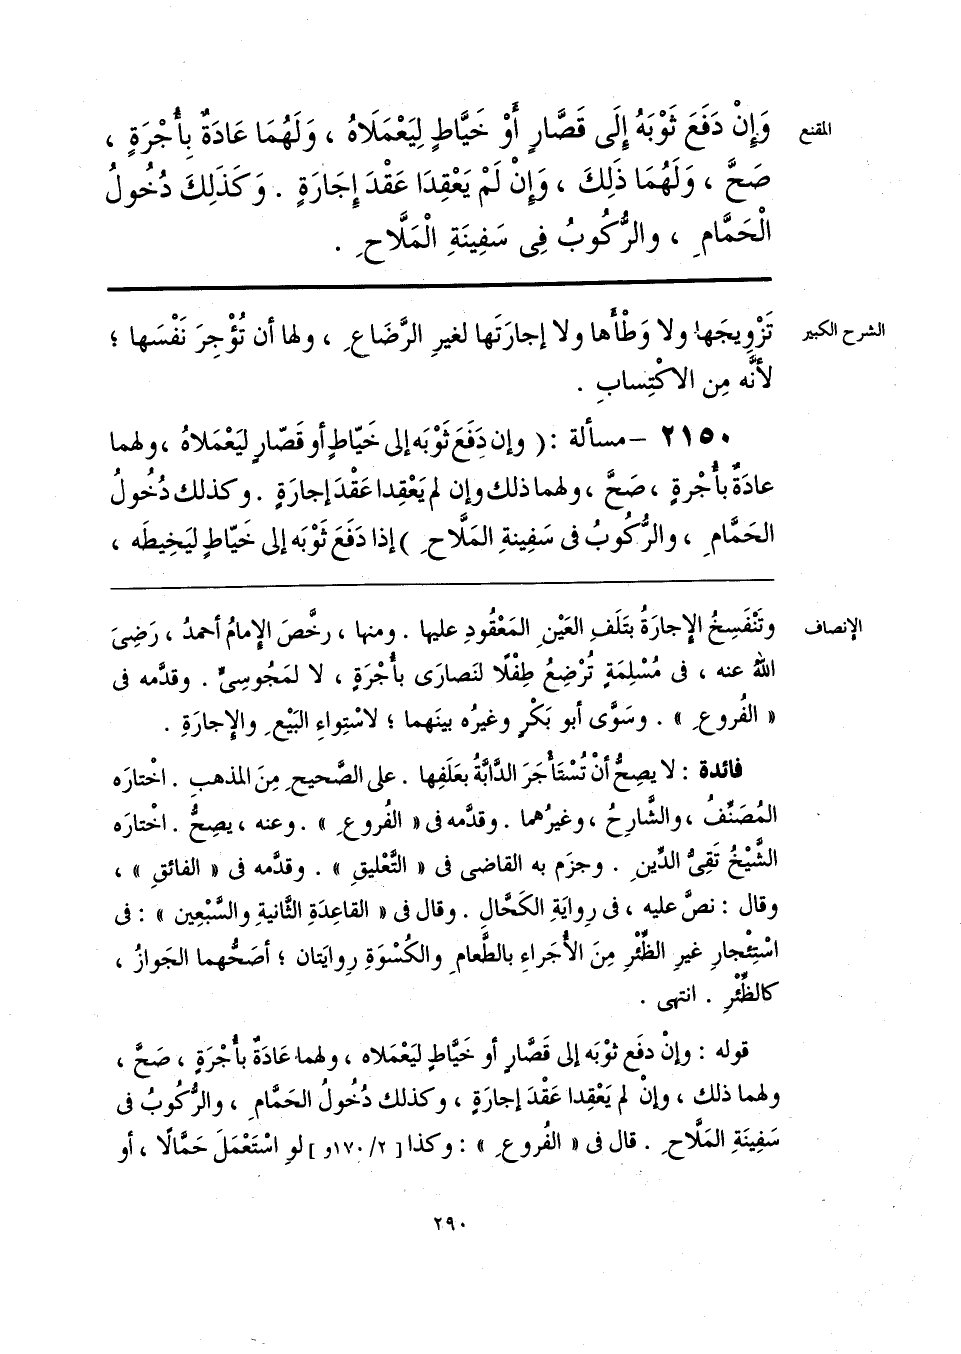 المقنع
وَإِنْ دَفَعَ ثَوْبَهُ إِلَى قَصَّارٍ أَوْ خَيَّاطٍ لِيَعْمَلَاهُ ، وَلَهُمَا عَادَةٌ بِأُجْرَةٍ ،
صَحَّ ، وَلَهُمَا ذَلِكَ ، وَإِنْ لَمْ يَعْقِدَا عَقْدَ إِجَارَةٍ . وَكَذَلِكَ دُخُولُ
الْحَمَّامِ ، والرُّكُوبُ فِى سَفِينَةِ الْمَلَّاحِ .
الشرح الكبير
تَزْوِيجَها ولا وَطْأَها ولا إجارَتَها لغيرِ الرَّضاعِ ، ولها أن تُؤْجِرَ نَفْسَها ؛
لأنَّه مِن الاكْتِسابِ .
٢١٥٠ – مسألة : ( وإن دَفَعَ ثَوْبَه إلى خَيّاطٍ أو قَصّارٍ ليَعْمَلاهُ ، ولهما
عادَةٌ بأُجْرةٍ ، صَحَّ ، ولهما ذلك وإن لم يَعْقِدا عَقْدَ إجارَةٍ . وكذلك دُخُولُ
الحَمَّامِ ، والرُّكُوبُ فى سَفِينةِ المَلَّاحِ ) إذا دَفَعَ ثَوْبَه إلى خَيّاطٍ ليَخِيطَه ،
الإنصاف
وتَنْفَسِخُ الإجارَةُ بتَلَفِ العَيْنِ المَعْقُودِ عليها . ومنها ، رخَّصَ الإمامُ أحمدُ ، رَضِىَ
اللهُ عنه ، فى مُسْلِمَةٍ تُرْضِعُ طِفْلًا لنَصارَى بأُجْرَةٍ ، لا لمَجُوسِىٍّ . وقدَّمه فى
« الفُروعِ » . وسَوَّى أبو بَكْرٍ وغيرُه بينَهما ؛ لاسْتِواءِ البَيْعِ والإجارَةِ .
فائدة : لا يصِحُّ أنْ تُسْتَأْجَرَ الدَّابَّةُ بعَلَفِها . على الصَّحيحِ مِنَ المذهبِ . اخْتارَه
المُصَنِّفُ ، والشَّارِحُ ، وغيرُهما . وقدَّمه فى « الفُروعِ » . وعنه ، يصِحُّ . اخْتارَه
الشَّيْخُ تَقِىُّ الدِّينِ . وجزَم به القاضى فى « التَّعْليقِ » . وقدَّمه فى « الفائقِ » ،
وقال : نصَّ عليه ، فى رِوايَةِ الكَحَّالِ . وقال فى « القاعِدَةِ الثَّانيةِ والسَّبْعِين » : فى
اسْتِئْجارِ غيرِ الظِّئْرِ مِنَ الأُجَراءِ بالطَّعامِ والكُسْوَةِ رِوايَتان ؛ أصَحُّهما الجَوازُ ،
كالظِّئْرِ . انتهى .
قوله : وإنْ دفَع ثوْبَه إلى قَصَّارٍ أو خَيَّاطٍ ليَعْمَلاه ، ولهما عَادَةٌ بأُجْرَةٍ ، صَحَّ ،
ولهما ذلك ، وإنْ لم يَعْقِدا عَقْدَ إجارَةٍ ، وكذلك دُخُولُ الحَمَّامِ ، والرُّكُوبُ فى
سَفِينَةِ المَلَّاحِ . قال فى « الفُروعِ » : وكذا [ ٢/ ١٧٠و ] لوِ اسْتَعْمَلَ حَمَّالًا ، أو
٢٩٠